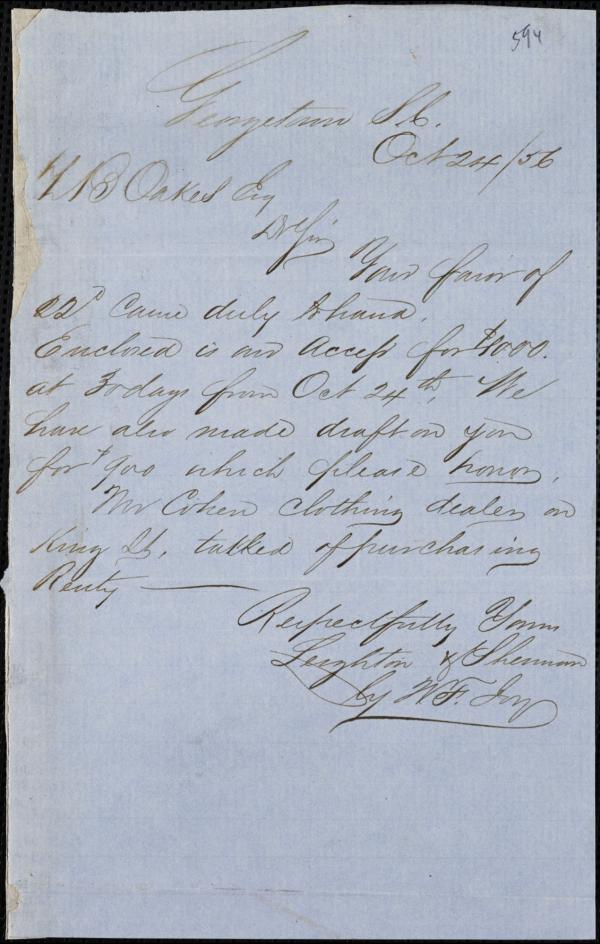 594
Georgetown S.C.
Oct 24/56
Z B Oakes Esq
Dr Sir
Your favor of
22d Came duly to hand.
Enclosed is our Accep for $1000.
at 30 days from Oct 24th, We
have also made draft on you
for $900 which please honor.
Mr Cohen clothing dealer on
King St, talked of purchasing
Renty —
Respectfully Yours
Leighton & Sherman
by W.F. Joy